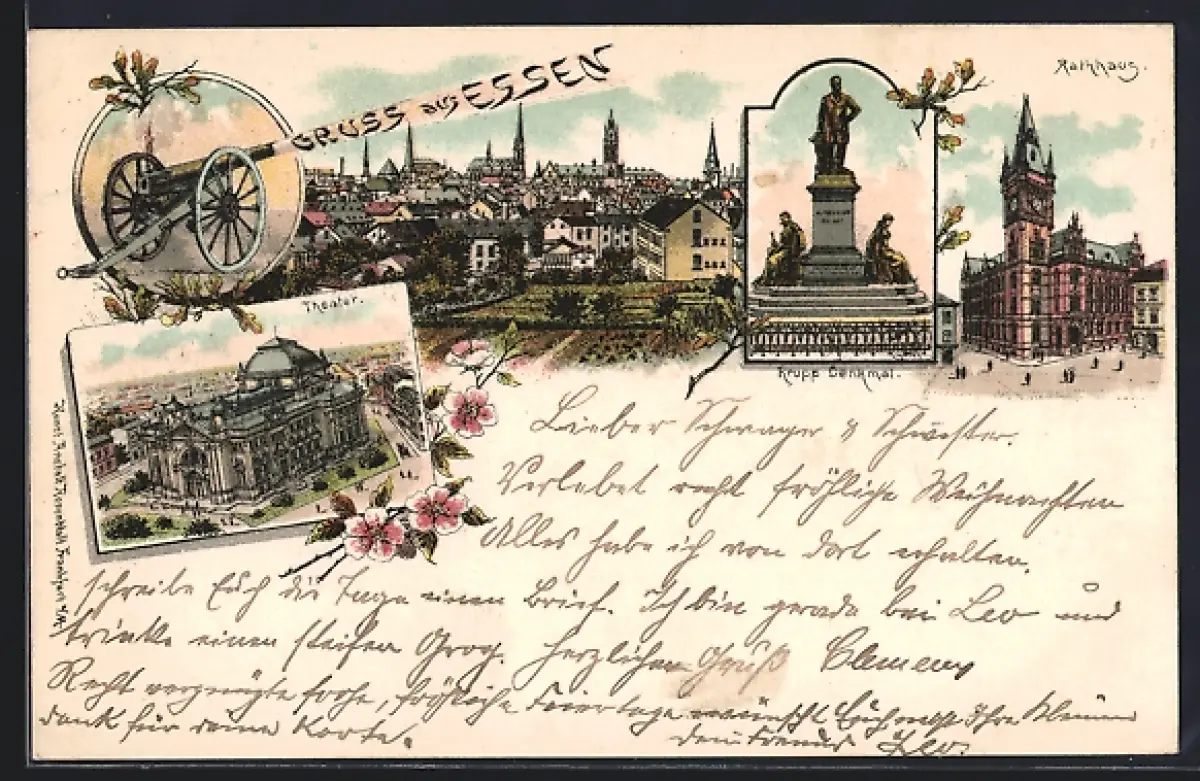 GRUSS aus ESSEN
Rathhaus.
Theater.
Krupp Denkmal.
Lieber Schwager & Schwester.
Verlebet recht fröhliche Weihnachten
Alles habe ich von dort erhalten,
schreibe Euch die Tage einen Brief. Ich bin gerade bei Leo und
trinke einen steifen Grog. Herzlichen Gruß Clemens
Recht vergnügte frohe, fröhliche Feiertage wünscht Euch nebst Ihre Kleinen
dank für deine Karte.
dein Freund Leo.